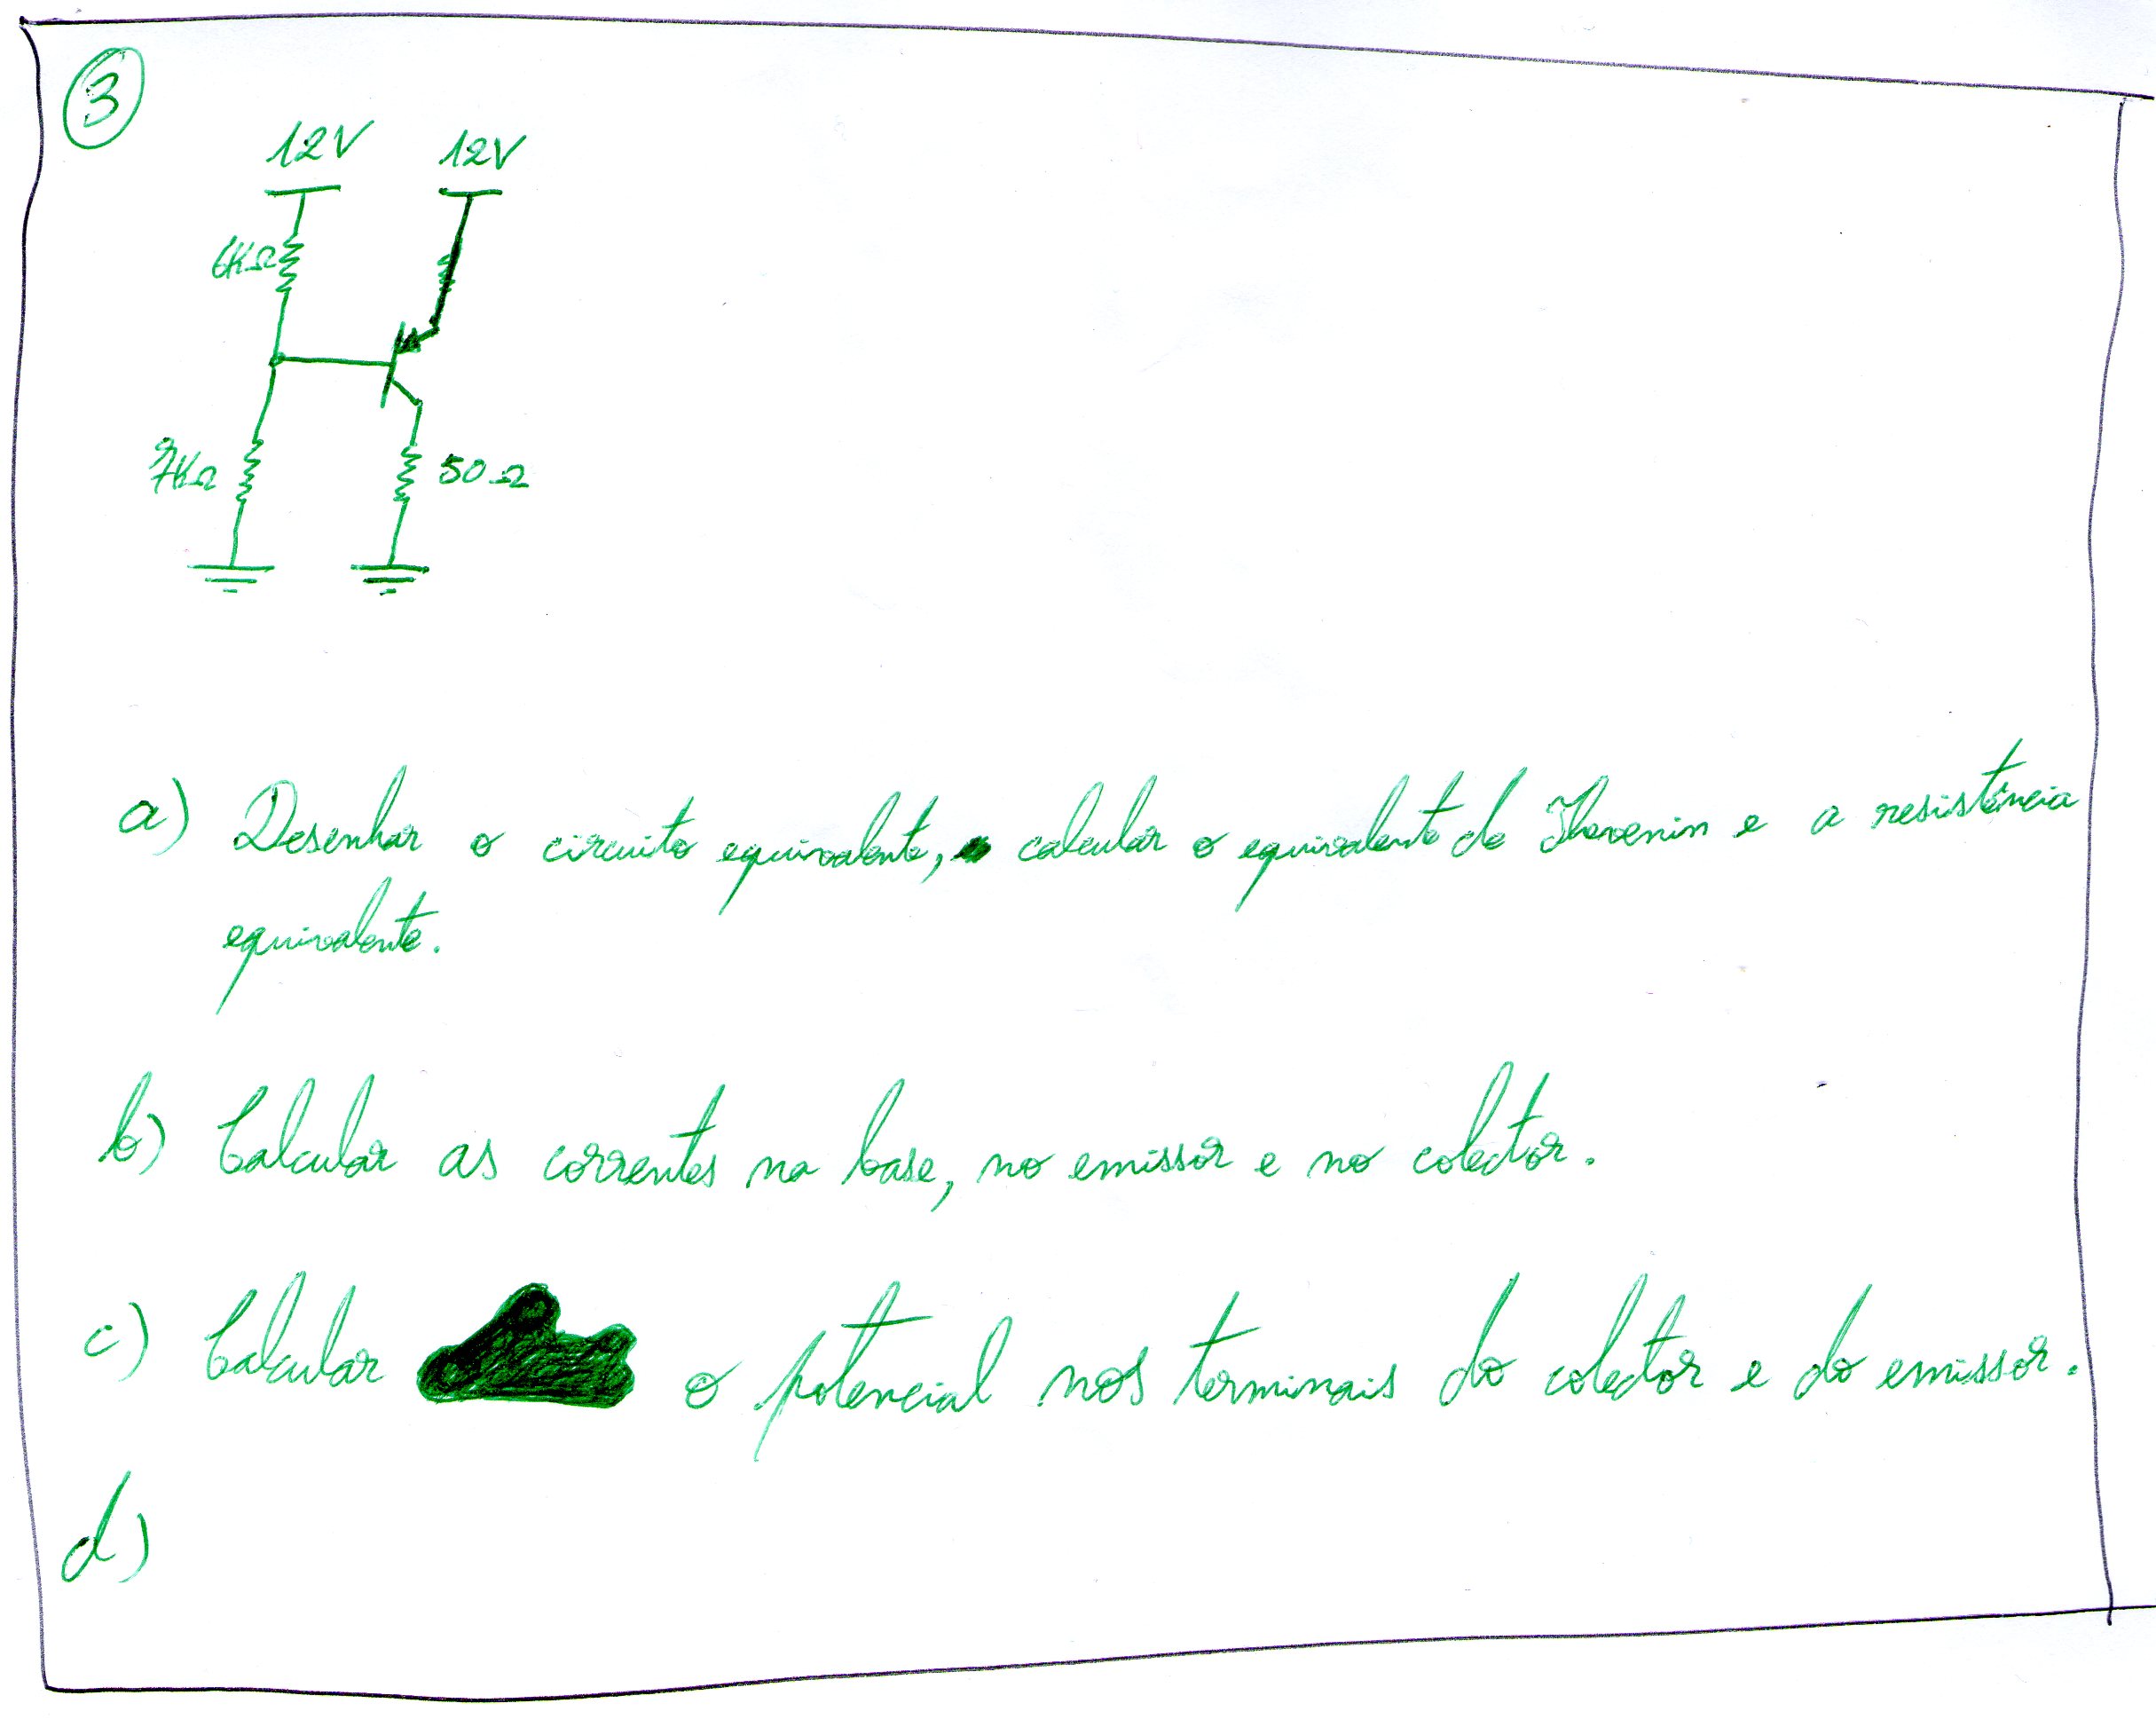 3
12V 12V
6KΩ
7KΩ 50Ω
a) Desenhar o circuito equivalente, calcular o equivalente de Thevenin e a resistência
equivalente.
b) Calcular as correntes na base, no emissor e no colector.
c) Calcular o potencial nos terminais do colector e do emissor.
d)